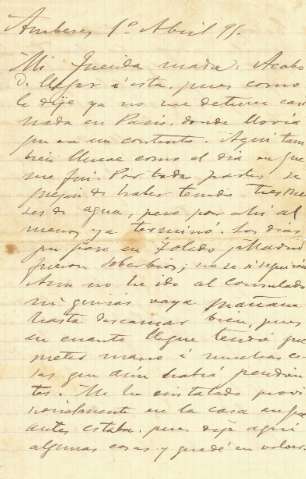 Amberes 1º Abril 91.
Mi querida mamá: Acabo
de llegar á esta, pues como
le dije ya no me detuve ca
nada en Paris, donde llovia
que era un contento. Aqui tam
bien llueve como el dia en que
me fui. Por todas partes se
quejan de haber tenido tres me
ses de agua, pero por ahi al
menos ya terminó. Los dias
que pasé en Toledo y Madrid
fueron soberbios; no se si seguirán
Aun no he ido al Consulado
ni quizas vaya mañana
hasta descansar bien, pues
en cuanto llegue tendré que
meter mano á muchas co
sas que aun habrá pendien
tes. Me he instalado provi
sionalmente en la casa en que
antes estaba, pues dejé aqui
algunas cosas y quedé en volver.